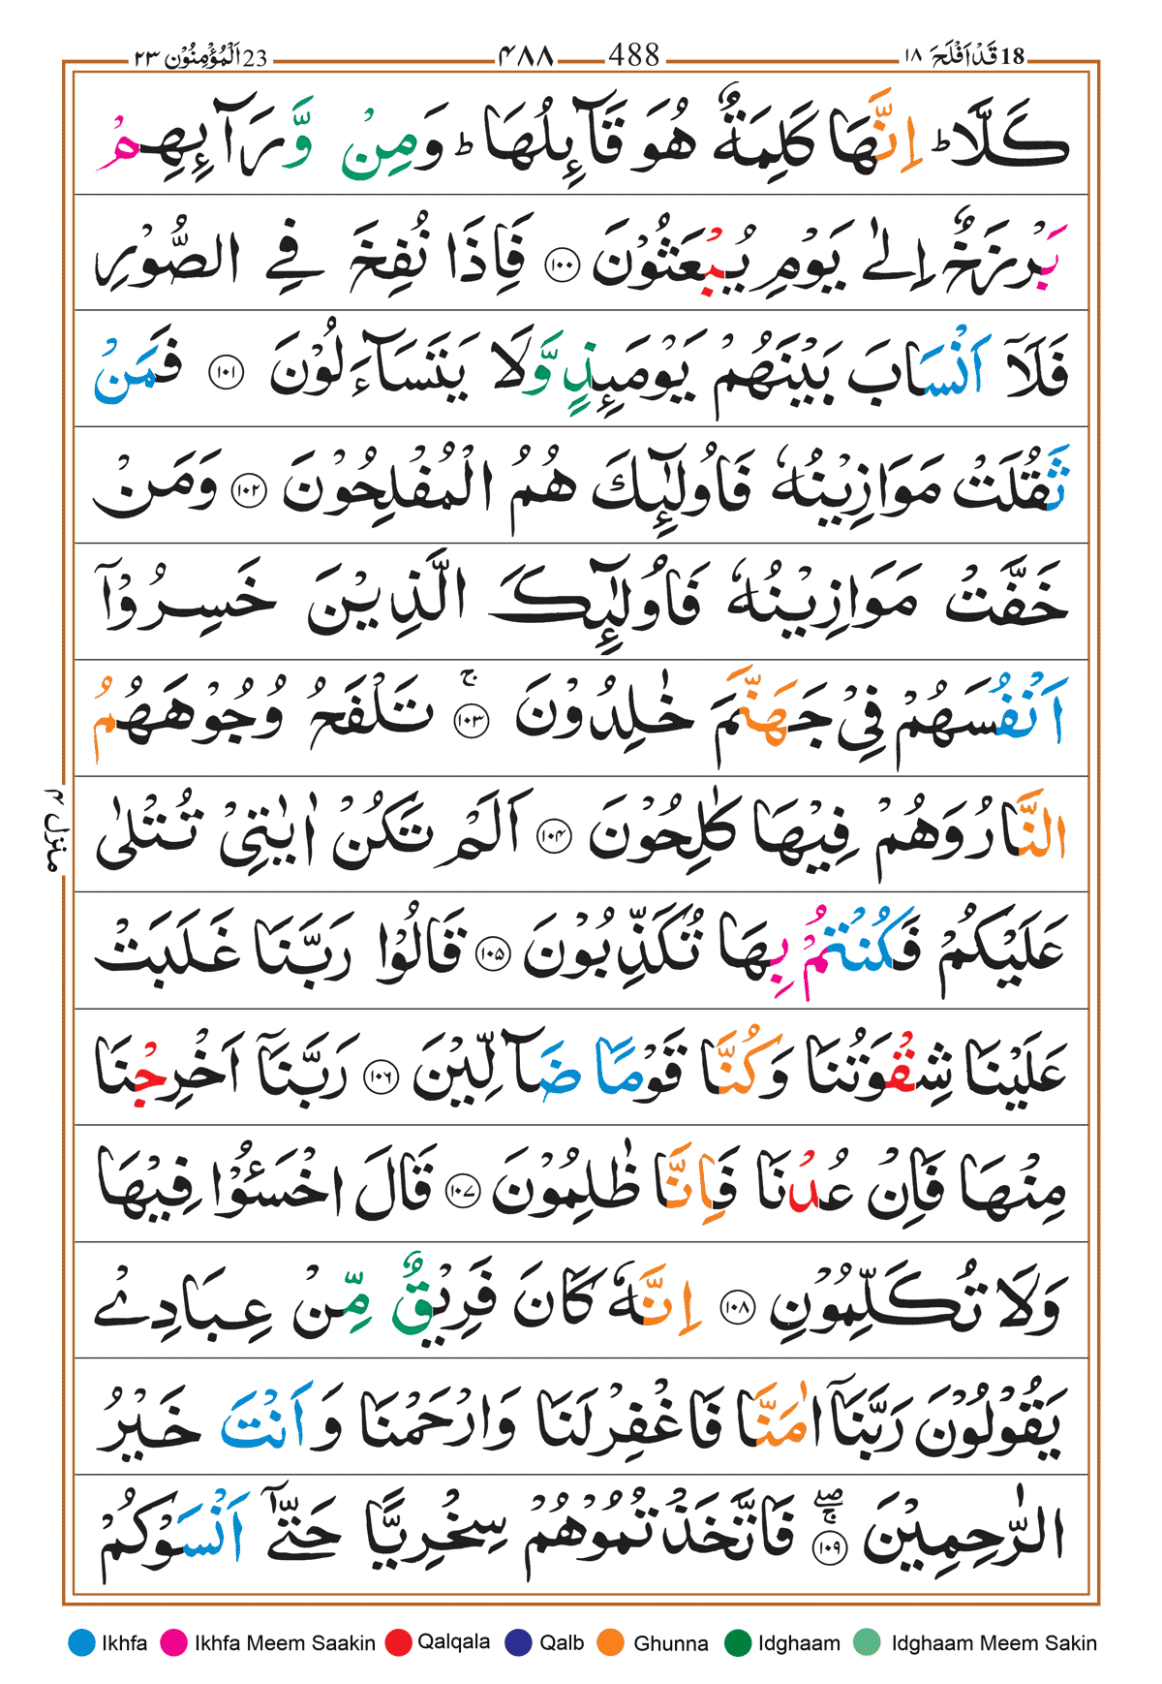 18 قَدْ اَفْلَحَ ١٨ 488 ۴۸۸ 23 اَلْمُؤْمِنُوْن ٢٣
كَلَّا ؕ اِنَّهَا كَلِمَةٌ هُوَ قَآٮِٕلُهَا ؕ وَمِنْ وَّرَآٮِٕهِمْ
بَرْزَخٌ اِلٰى يَوْمِ يُبْعَثُوْنَ ۝۱۰۰ فَاِذَا نُفِخَ فِى الصُّوْرِ
فَلَاۤ اَنْسَابَ بَيْنَهُمْ يَوْمَٮِٕذٍ وَّلَا يَتَسَآءَلُوْنَ ۝۱۰۱ فَمَنْ
ثَقُلَتْ مَوَازِيْنُهٗ فَاُولٰٓٮِٕكَ هُمُ الْمُفْلِحُوْنَ ۝۱۰۲ وَمَنْ
خَفَّتْ مَوَازِيْنُهٗ فَاُولٰٓٮِٕكَ الَّذِيْنَ خَسِرُوْۤا
اَنْفُسَهُمْ فِىْ جَهَنَّمَ خٰلِدُوْنَ ۝۱۰۳ ۚ تَلْفَحُ وُجُوْهَهُمُ
النَّارُ وَهُمْ فِيْهَا كٰلِحُوْنَ ۝۱۰۴ اَلَمْ تَكُنْ اٰيٰتِىْ تُتْلٰى
عَلَيْكُمْ فَكُنْتُمْ بِهَا تُكَذِّبُوْنَ ۝۱۰۵ قَالُوْا رَبَّنَا غَلَبَتْ
عَلَيْنَا شِقْوَتُنَا وَكُنَّا قَوْمًا ضَآلِّيْنَ ۝۱۰۶ رَبَّنَاۤ اَخْرِجْنَا
مِنْهَا فَاِنْ عُدْنَا فَاِنَّا ظٰلِمُوْنَ ۝۱۰۷ قَالَ اخْسَـُٔوْا فِيْهَا
وَلَا تُكَلِّمُوْنِ ۝۱۰۸ اِنَّهٗ كَانَ فَرِيْقٌ مِّنْ عِبَادِىْ
يَقُوْلُوْنَ رَبَّنَاۤ اٰمَنَّا فَاغْفِرْ لَنَا وَارْحَمْنَا وَاَنْتَ خَيْرُ
الرّٰحِمِيْنَ ۝۱۰۹ ۖۚ فَاتَّخَذْتُمُوْهُمْ سِخْرِيًّا حَتّٰٓى اَنْسَوْكُمْ
منزل ۴
Ikhfa Ikhfa Meem Saakin Qalqala Qalb Ghunna Idghaam Idghaam Meem Sakin